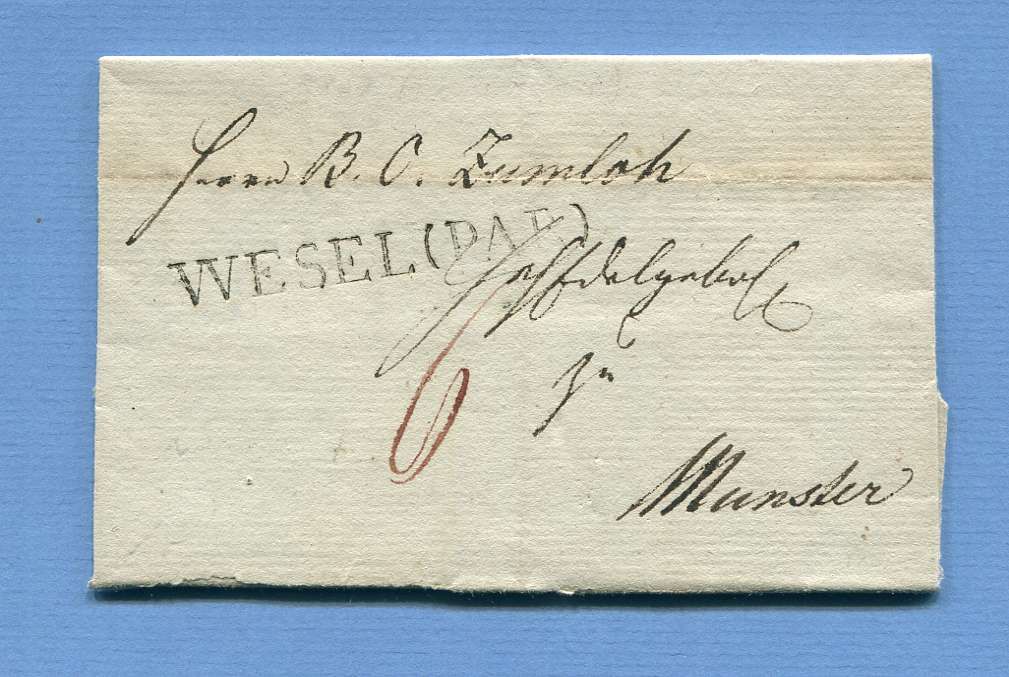 Herrn B. C. Zumloh
WESEL (PAR)
6
zu
Munster